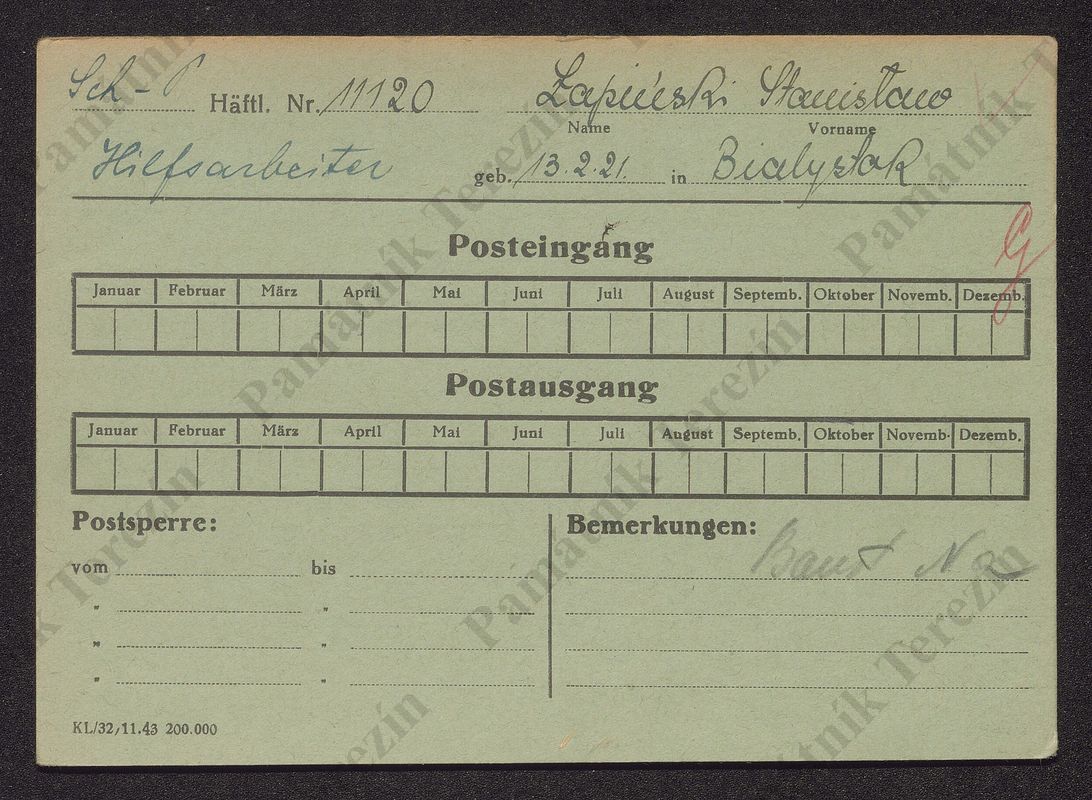 Sch - P Häftl. Nr. 11120 Łapiński Stanisław
Name Vorname
Hilfsarbeiter geb. 13.2.21. in Bialystok
Posteingang
G
Januar Februar März April Mai Juni Juli August Septemb. Oktober Novemb. Dezemb.
Postausgang
Januar Februar März April Mai Juni Juli August Septemb. Oktober Novemb. Dezemb.
Postsperre: Bemerkungen:
vom bis
" "
" "
" "
KL/32/11.43 200.000
Památník Terezín